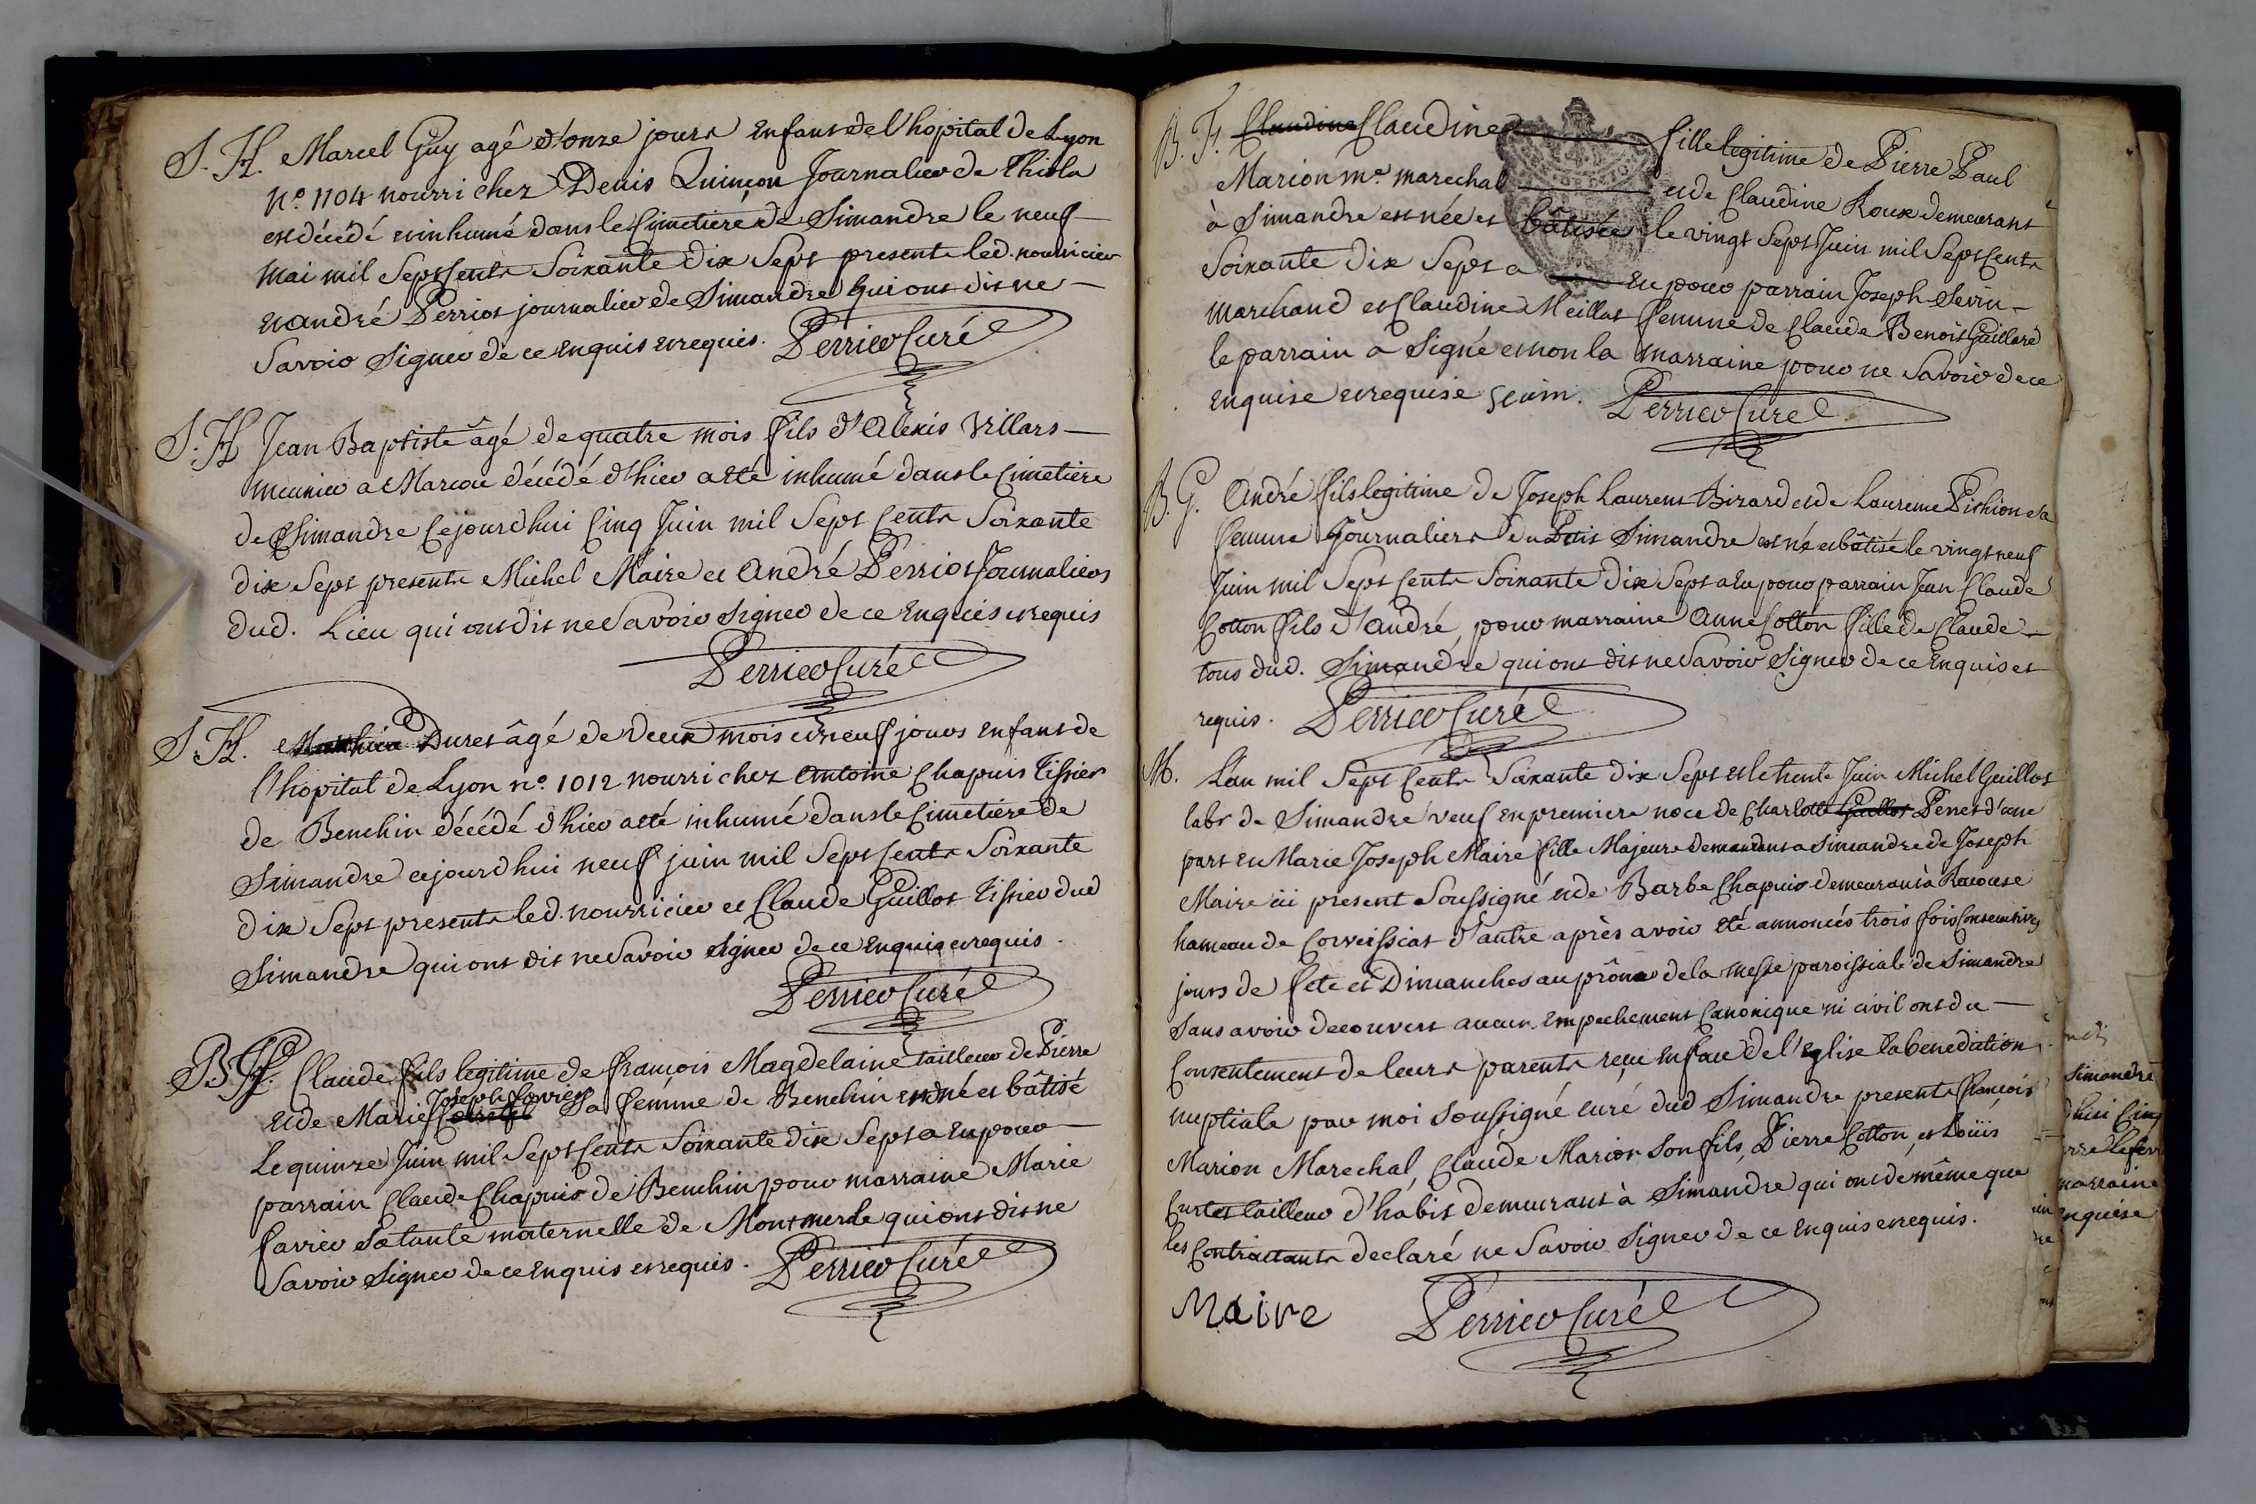 S. H. Marcel Guy agê d'onze jours Enfant de l'hopital de Lyon
N.o 1104 nourri chez Denis Quinçon Journalier de Thiola
est décédé et inhumé dans le Cimetiére de Simandre le neuf
Mai mil Sept Cents Soixante Dix Sept presents led. nourricier
et andré Perriot journalier de Simandre qui ont dit ne
Savoir Signer de ce Enquis et requis. Perrier Curé
S. H Jean Baptiste âgé de quatre mois fils d'Alexis Villars
meunier a Marcou décédé d'hier a eté inhumé dans le Cimetiere
de Simandre Cejourdhui Cinq Juin mil Sept Cents Soixante
dix Sept presents Michel Maire et André Perriot Journaliers
dud. Lieu qui ont dit ne Savoir Signer de ce Enquis et requis
Perrier Curé
S. H. Duret âgé de Deux mois et neuf jours Enfant de
l'hopital de Lyon n.o 1012 nourri chez Antoine Chapuis Tissier
de Benchin décédé d'hier a eté inhumé dans le Cimetiere de
Simandre cejourdhui neuf juin mil Sept Cents Soixante
Dix Sept presents led. nourricier et Claude Guillot Tissier dud
Simandre qui ont dit ne Savoir Signer de ce Enquis et requis.
Perrier Curé
B. Claude fils legitime de françois Magdelaine tailleur de Pierre
Joseph favier
et de Marie Sa femme de Benchin est né et bâtisé
Le quinze Juin mil Sept Cents Soixante dix Sept a Eu pour
parrain Claude Chapuis de Benchin pour marraine Marie
favier Sa tante maternelle de Montmerle qui ont dit ne
Savoir Signer de ce Enquis et requis. Perrier Curé
B. F. Claudine Claudine fille legitime de Pierre Paul
Marion m.e marechal et de Claudine Roux demeurant
à Simandre est née et bâtisée le vingt Sept Juin mil Sept Cents
Soixante Dix Sept a Eu pour parrain Joseph Sevin
Marchand et Claudine Meillat femme de Claude Benoit Guillard
le parrain a Signé et non la marraine pour ne Savoir de ce
Enquise et requise Perrier Curé
B. G. André fils legitime de Joseph Laurent Bizard et de Laurence Pichion sa
femme Journaliers Simandre est né et bâtisé le vingt neuf
Juin mil Sept Cents Soixante Dix Sept a Eu pour parrain Jean Claude
Cotton fils d'André, pour marraine Anne Cotton fille de Claude
tous dud. Simandre qui ont dit ne Savoir Signer de ce Enquis et
requis. Perrier Curé
M. L'an mil Sept Cents Soixante Dix Sept et le trente Juin Michel Guillot
labr de Simandre veuf en premiere noce de Charlotte Guillot Penet d'une
part Et Marie Joseph Maire fille Majeure demeurant a Simandre de Joseph
Maire ici present Soussigné et de Barbe Chapuis demeurant à Racouse
hameau de Corveissiat d'autre après avoir eté annoncés trois fois Consecutives
jours de fete et Dimanches au prône de la Messe paroissiale de Simandre
Sans avoir decouvert aucun Empechement Canonique ni civil ont du
Consentement de leurs parents reçu En face de l'Eglise la benediction
nuptiale par moi Soussigné curé dud Simandre presents françois
Marion Marechal, Claude Marion Son fils, Pierre Cotton, et Loüis
Curtet tailleur d'habit demeurant à Simandre qui ont de même que
les Contractants declaré ne Savoir Signer de ce Enquis et requis.
Maire Perrier Curé
Simandre
marraine
Enquise